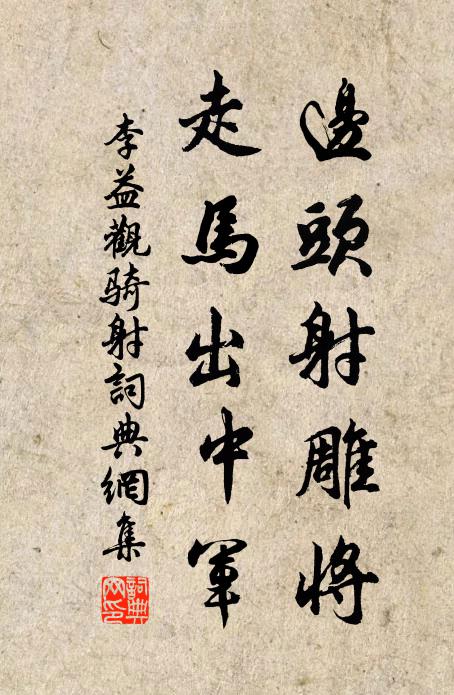 邊頭射雕將
走馬出中軍
李益觀骑射詞典網集
詞典
网印